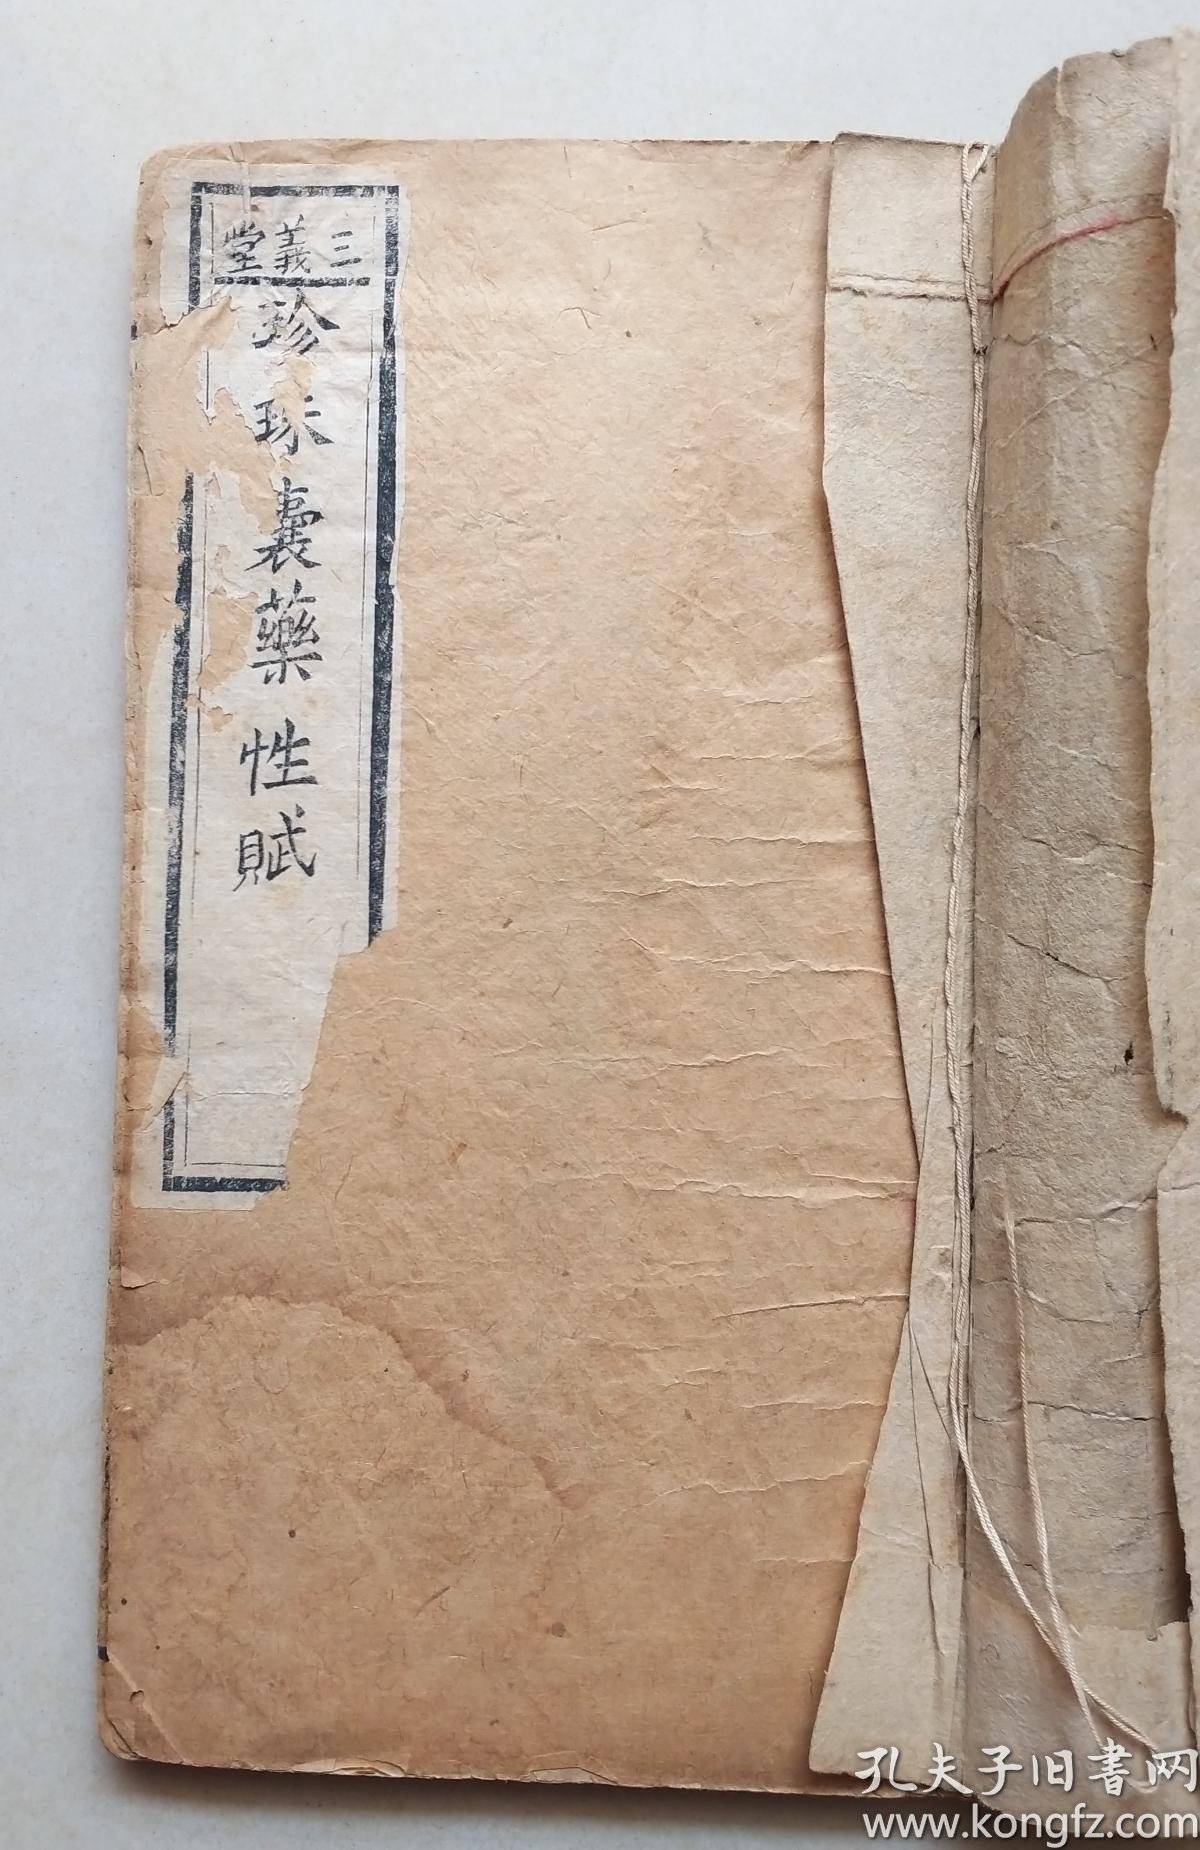 三義堂
珍珠囊藥性賦
孔夫子旧書网
www.kongfz.com